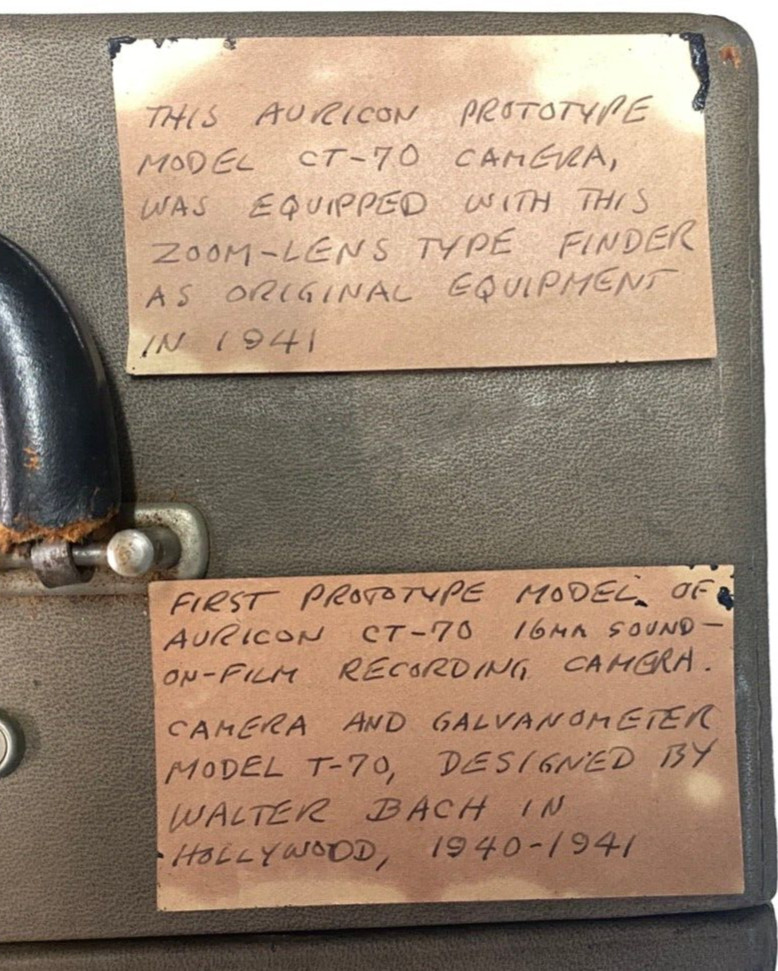 THIS AURICON PROTOTYPE
MODEL CT-70 CAMERA,
WAS EQUIPPED WITH THIS
ZOOM-LENS TYPE FINDER
AS ORIGINAL EQUIPMENT
IN 1941
FIRST PROTOTYPE MODEL OF
AURICON CT-70 16MM SOUND-
ON-FILM RECORDING CAMERA.
CAMERA AND GALVANOMETER
MODEL T-70, DESIGNED BY
WALTER BACH IN
HOLLYWOOD, 1940-1941